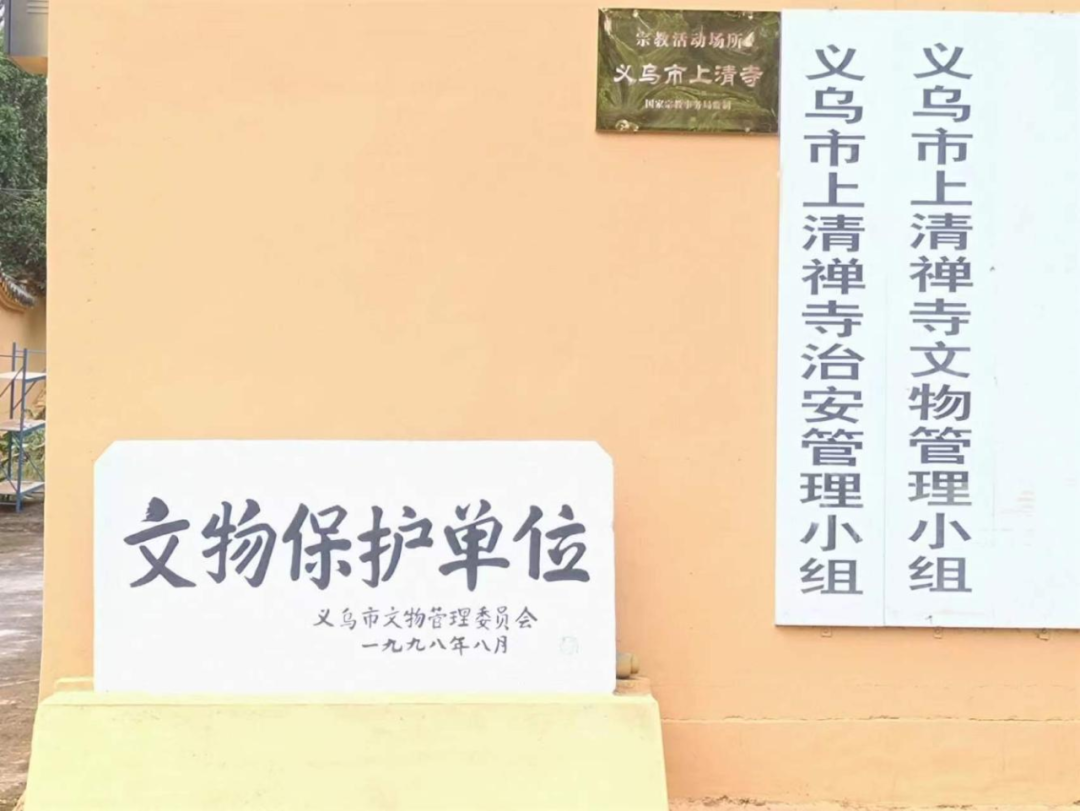 宗教活动场所
义乌市上清寺
国家宗教事务局监制
义乌市上清禅寺文物管理小组
义乌市上清禅寺治安管理小组
文物保护单位
义乌市文物管理委员会
一九九八年八月